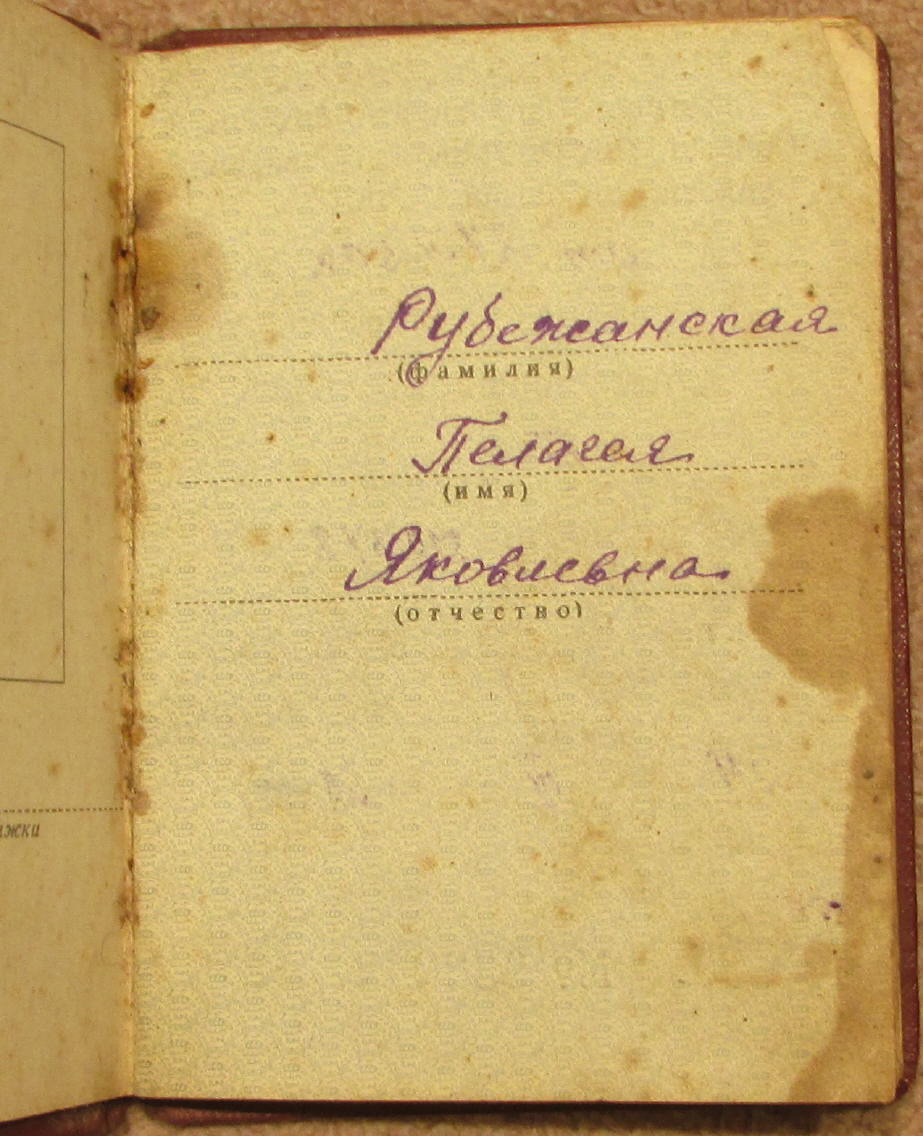 Рубежанская
(фамилия)
Пелагея
(имя)
Яковлевна
(отчество)